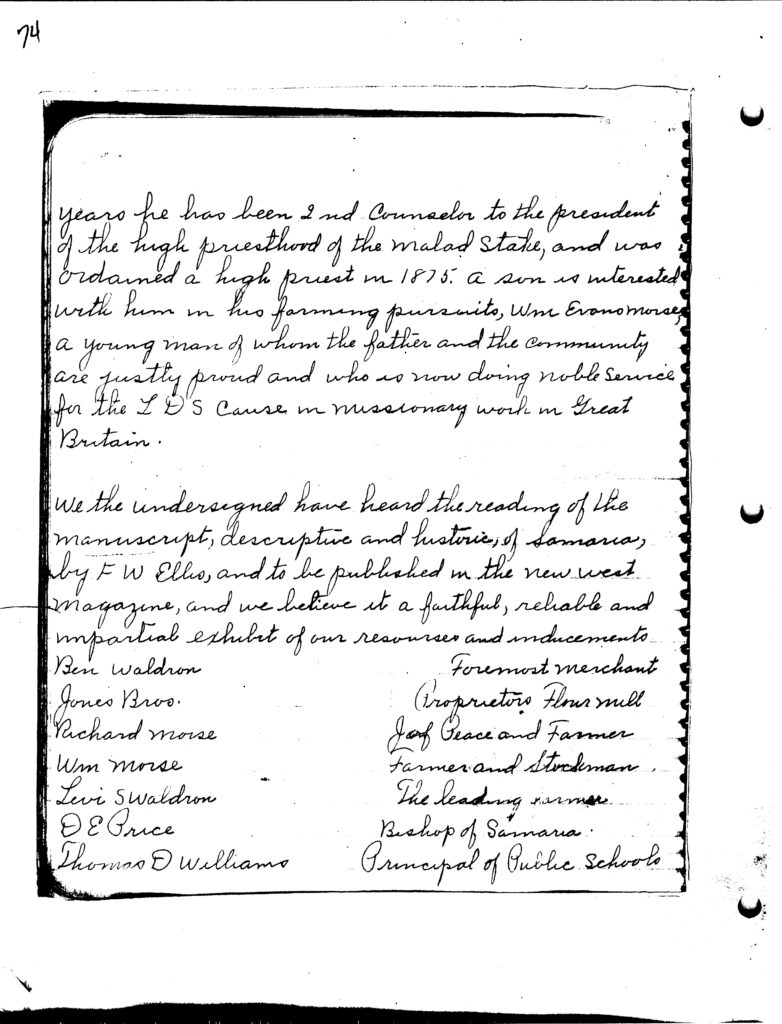 74
years he has been 2nd Counselor to the president
of the high priesthood of the Malad Stake, and was
ordained a high priest in 1875. A son is interested
with him in his farming pursuits, Wm Evans Morse,
a young man of whom the father and the community
are justly proud and who is now doing noble service
for the L D S Cause in missionary work in Great
Britain.
We the undersigned have heard the reading of the
manuscript, descriptive and historic, of Samaria,
by F W Ellis, and to be published in the new west
magazine, and we believe it a faithful, reliable and
impartial exhibit of our resourses and inducements
Ben Waldron Foremost merchant
Jones Bros. Proprietors Flour mill
Richard Morse J of Peace and Farmer
Wm Morse Farmer and Stockman.
Levi S Waldron The leading farmer
D E Price Bishop of Samaria.
Thomas D Williams Principal of Public Schools